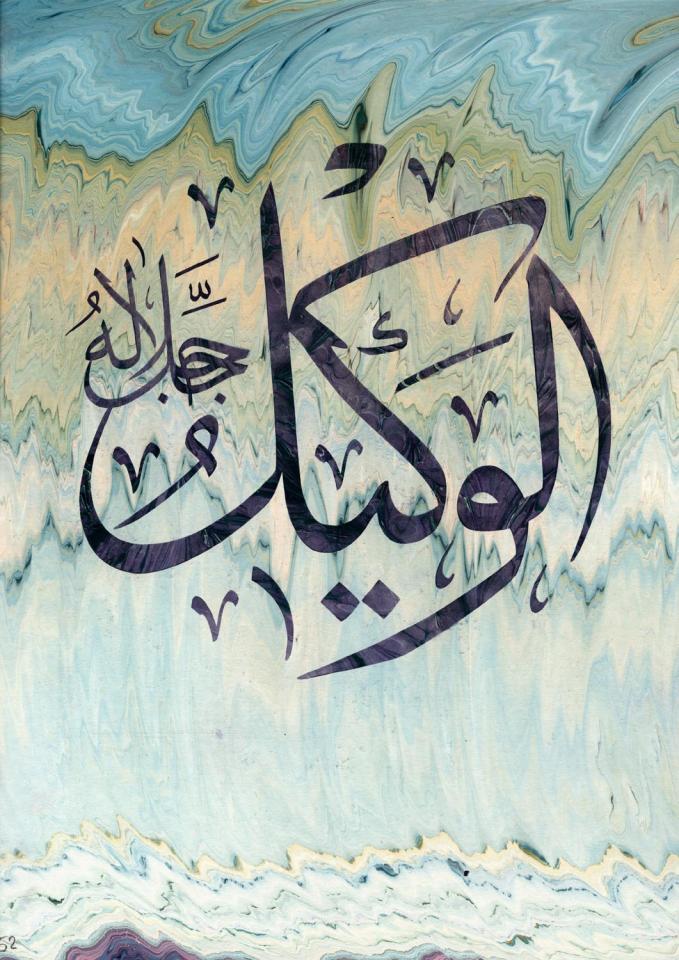 الوَكِيلُ
جَلَّ جَلَالُهُ
52